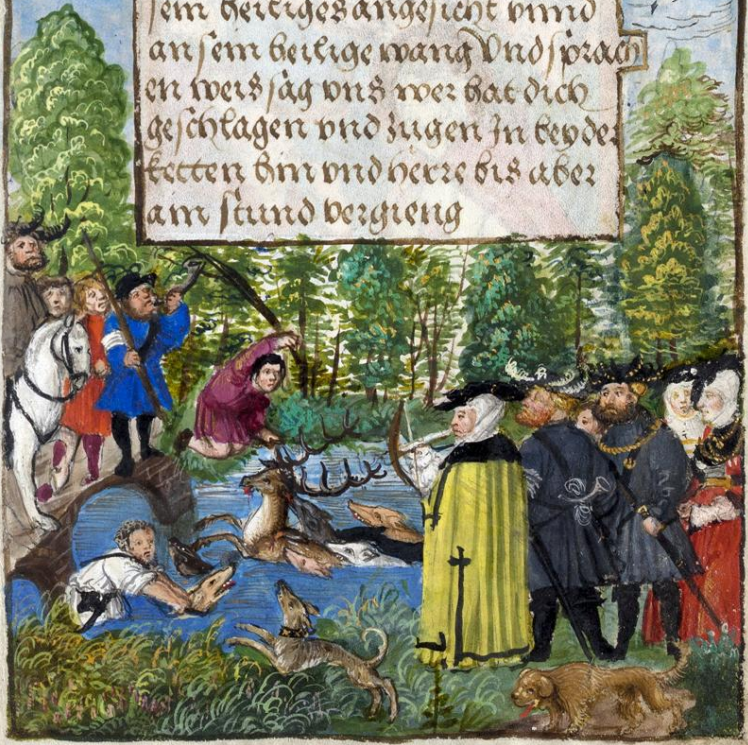 sein heiliges angesicht vnnd
an sein heilige wang Vnd sprach
en weissag vns wer hat dich
geschlagen vnd zugen In bey der
ketten hin vnd herre bis aber
ain stund vergieng